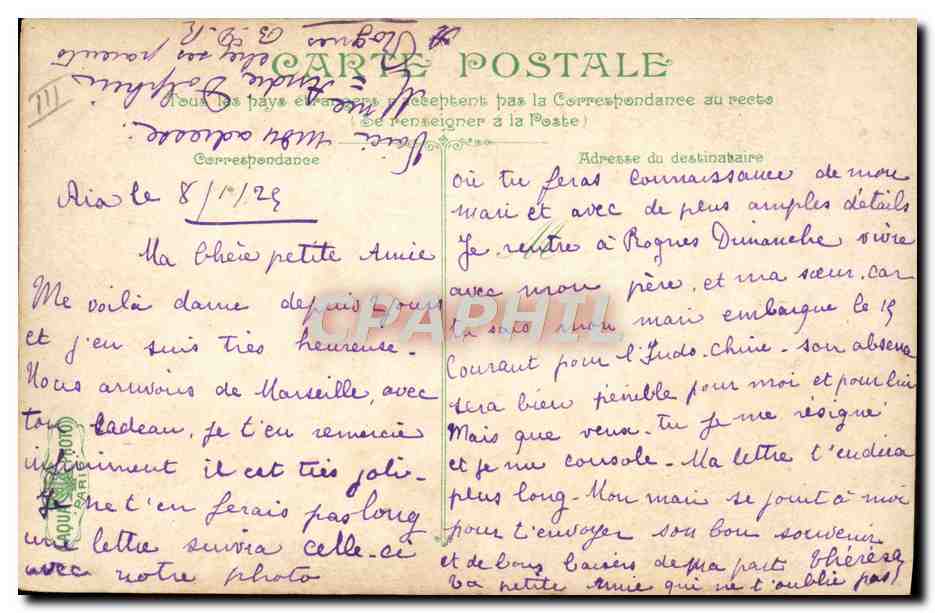 CARTE POSTALE
Tous les pays étrangers n'acceptent pas la Correspondance au recto
(Se renseigner à la Poste)
Correspondance
Adresse du destinataire
III
Voici mon adresse:
Mme André Dolphin
chez ses parents
à Rognes B. D. R
Aix le 8/1/25
Ma chère petite Amie
Me voilà dame depuis jours
et j'en suis très heureuse.
Nous arrivons de Marseille, avec
ton cadeau, je t'en remercie
infiniment il est très joli.
Je ne t'en ferais pas long
une lettre suivra celle-ci
avec notre photo
où tu feras connaissance de mon
mari et avec de plus amples détails
Je rentre à Rognes Dimanche vivre
avec mon père, et ma sœur, car
tu sais mon mari embarque le 15
Courant pour l'Indo-chine - son absence
sera bien pénible pour moi et pour lui
Mais que veux-tu je me résigne
et je me console - Ma lettre t'en dira
plus long - Mon mari se joint à moi
pour t'envoyer son bon souvenir
et de bons baisers de ma part Thérèse
ta petite Amie qui ne t'oublie pas
PARIS
CPAPHIL